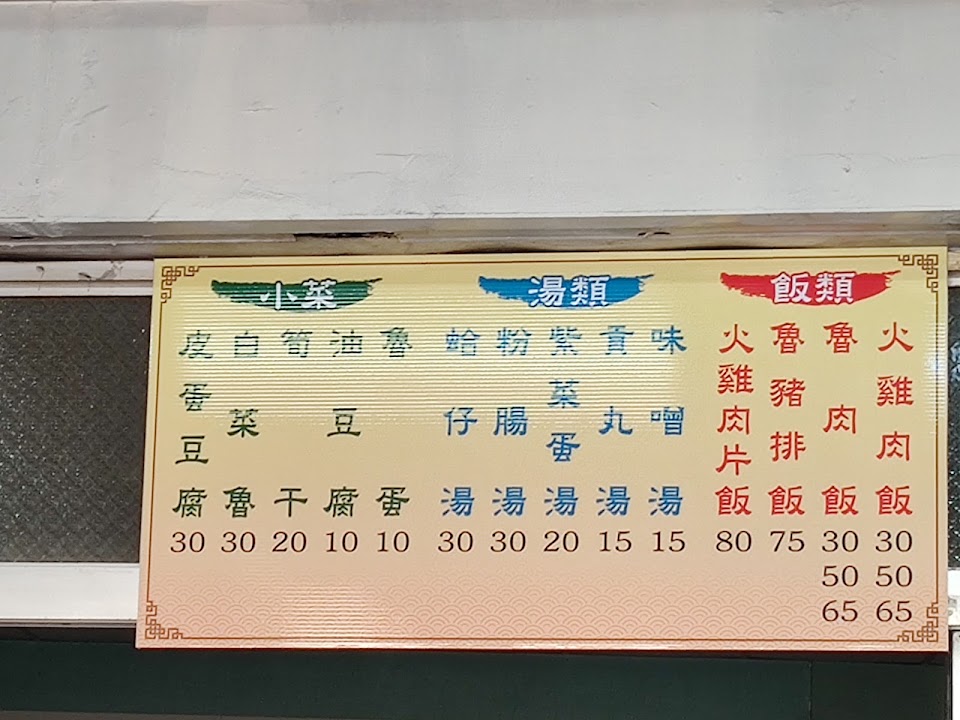 飯類
火雞肉飯 30 50 65
魯肉飯 30 50 65
魯豬排飯 75
火雞肉片飯 80
湯類
味噌湯 15
貢丸湯 15
紫菜蛋湯 20
粉腸湯 30
蛤仔湯 30
小菜
魯蛋 10
油豆腐 10
筍干 20
白菜魯 30
皮蛋豆腐 30